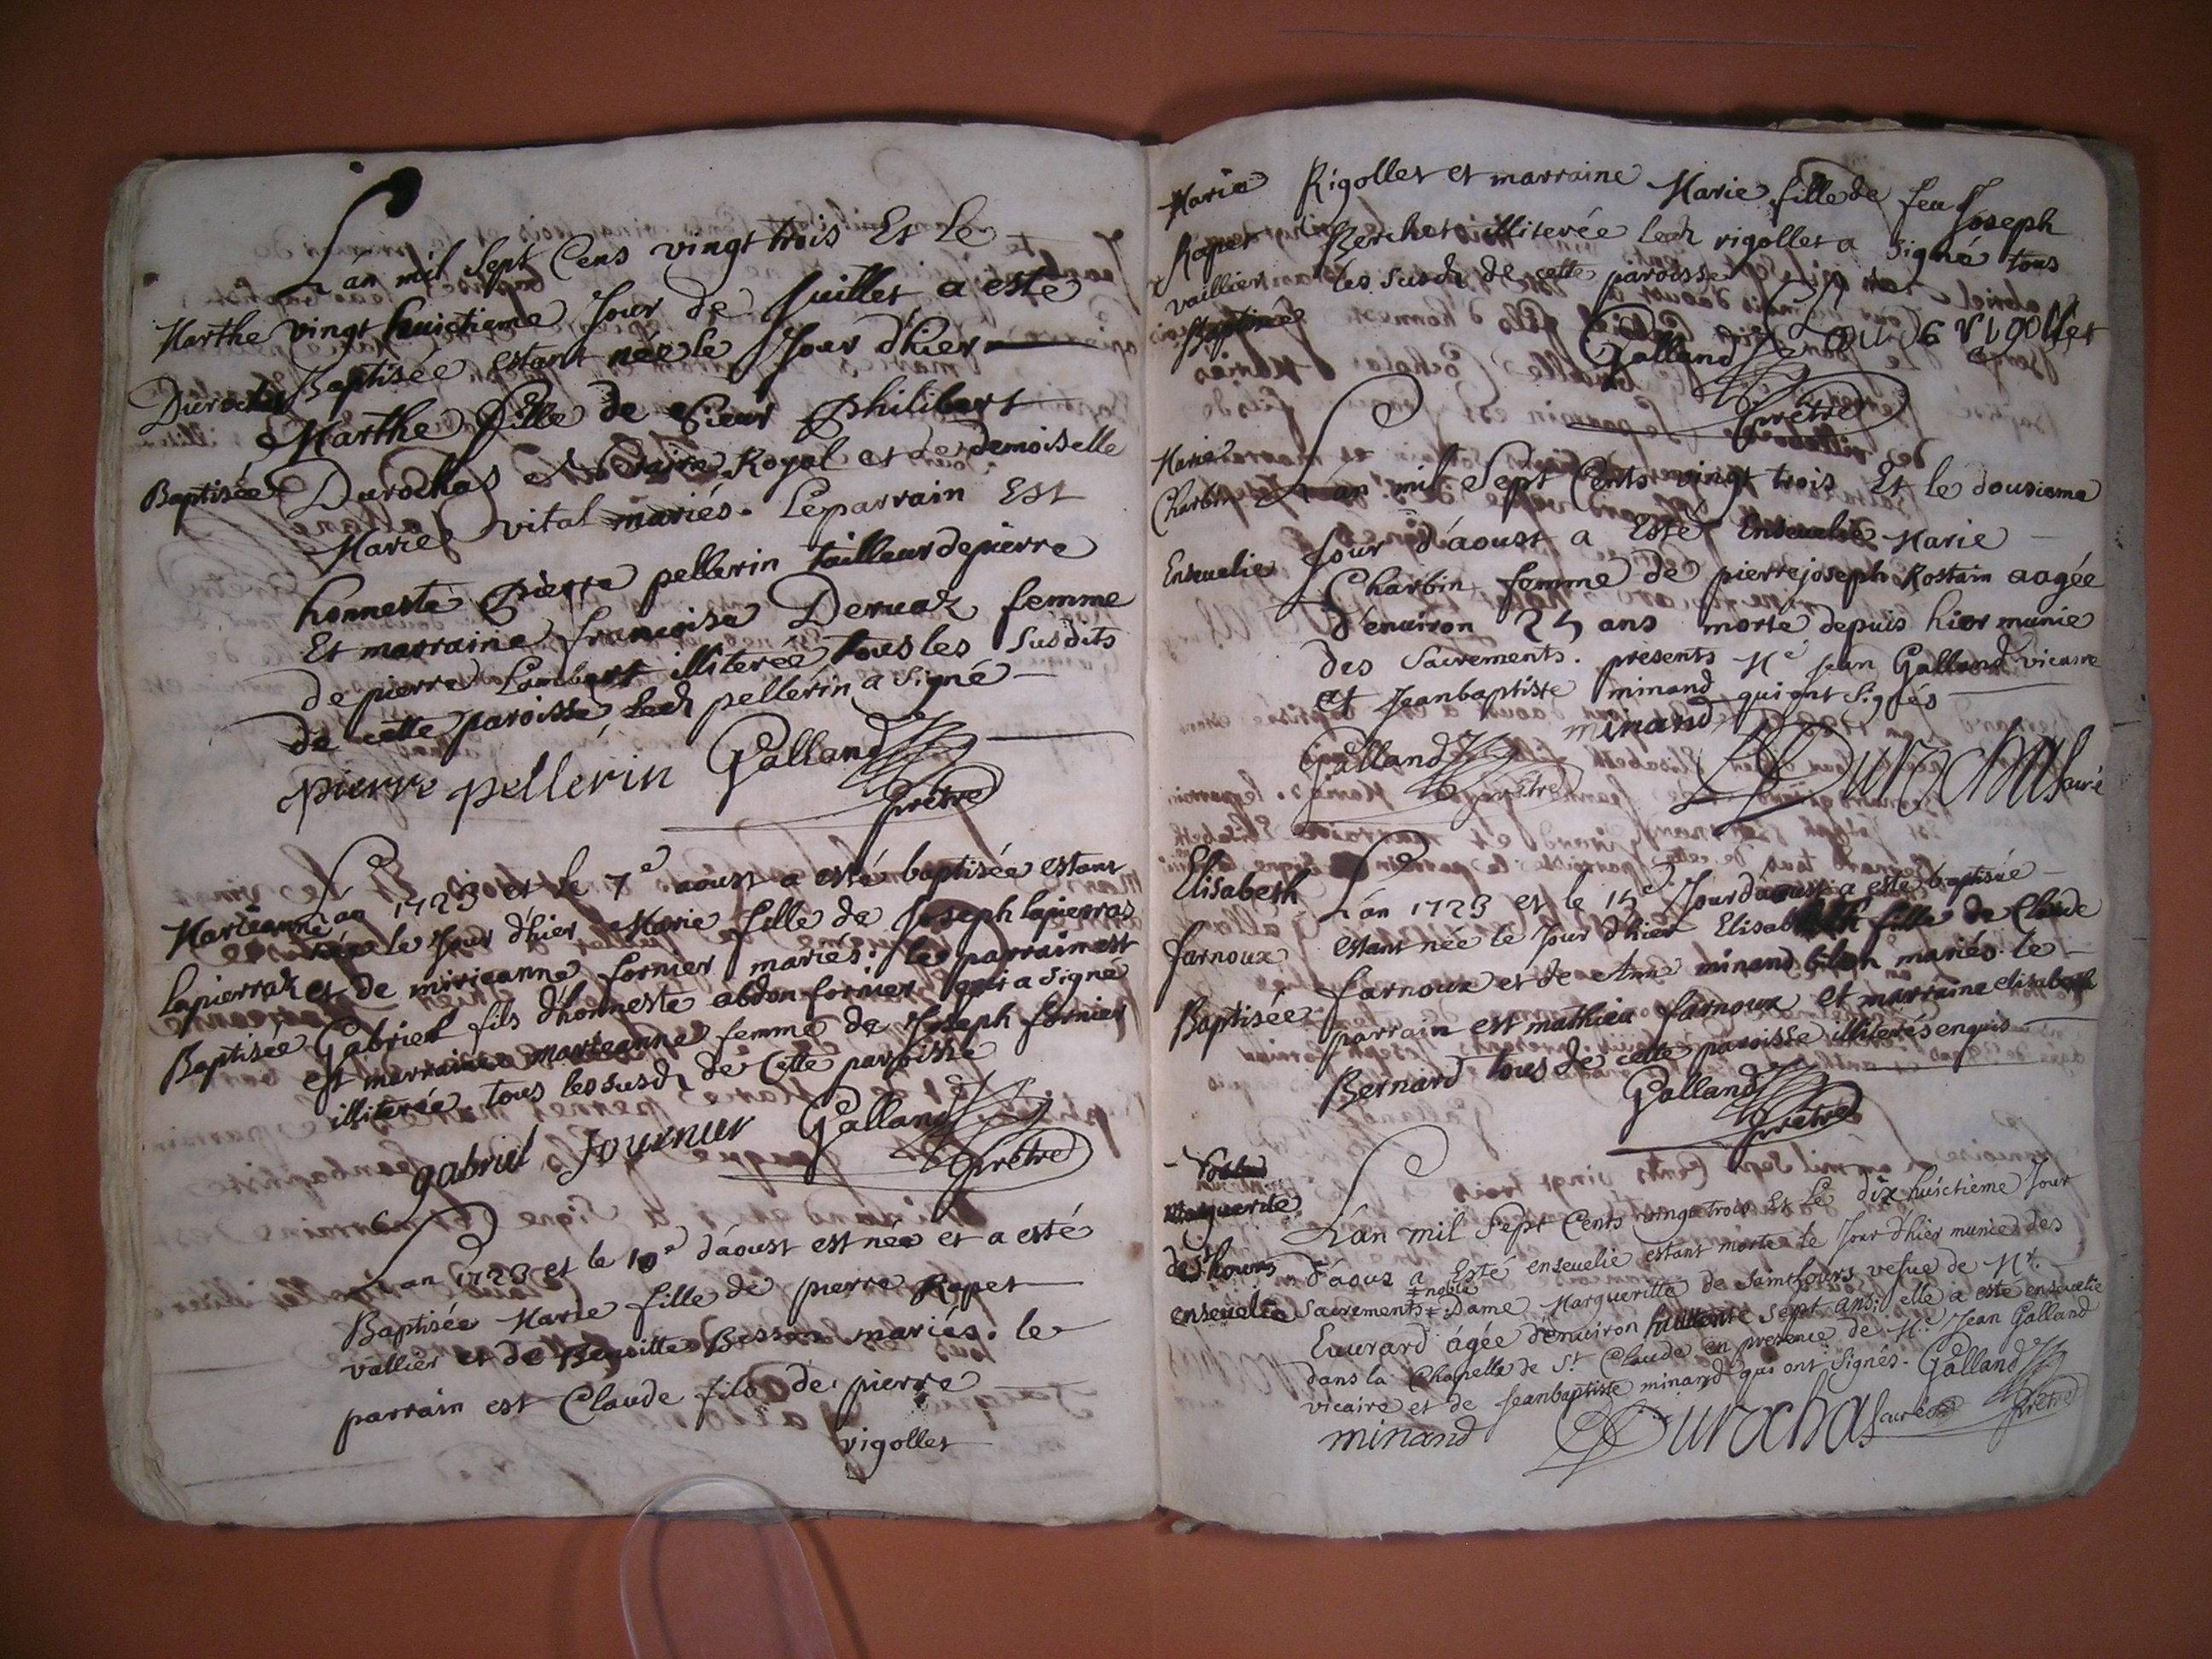 L'an mil Sept Cens vingt trois Et Le
Marthe vingt huictieme Jour de Juillet a esté
Durochas Baptisée estant née le Jour d'hier
Marthe fille de Sieur Philibert
Baptisée Durochas Notaire Royal et de demoiselle
Marie vital mariés. Le parrain Est
honneste pierre pellerin tailleur de pierre
Et marraine françoise Deruaz femme
de pierre Lambert illiterée tous les Susdits
de cette paroisse led pellerin a Signé
pierre pellerin Galland
prètre
L'an 1723 et le 7e aoust a esté baptisée estant
Marieanne née le Jour d'hier Marie fille de Joseph lapierras
lapierraz et de marieanne fornier mariés. le parrain est
Baptisée Gabriel fils d'honneste abdon fornier qui a Signé
et marraine marieanne femme de Joseph fornier
illiterée tous les susd de Cette paroisse
gabriel fournier Galland
prètre
L'an 1723 et le 10e d'aoust est née et a esté
Baptisée Marie fille de pierre Rapet
vallier et de Benoitte Besson mariés. le
parrain est Claude fils de pierre
rigollet
Marie Rigollet et marraine Marie fille de feu Joseph
Rapet Berchet illiterée led rigollet a Signé tous
vaillier les Susd de cette paroisse
Baptisée
Galland rigollet
prètre
Marie L'an mil Sept Cents vingt trois Et le dousieme
Charbin
Enseuelie Jour d'aoust a Esté Enseuelie Marie
Charbin femme de pierre joseph Rostain aagée
d'enuiron 25 ans morte depuis hier munie
des Sacrements. presents Me Jean Galland vicaire
et Jeanbaptiste minand qui ont Signés
minand
Galland prètre Durochas curé
Elisabeth L'an 1723 et le 15e Jour d'aoust a esté baptisée
farnoux estant née le Jour d'hier Elisabeth fille de Claude
farnoux et de Anne minand bilon mariés. le
Baptisée parrain est mathieu farnoux et marraine elisabeth
Bernard tous de cette paroisse illiterés enquis
Galland
prètre
Noble
Marguerite L'an mil Sept Cents vingt trois Et Le dix huictieme Jour
de St hours d'aous a Esté enseuelie estant morte le Jour d'hier munie des
noble
enseuelie Sacrements Dame Margueritte de Sainthours vefue de Mr.
Euurard âgée d'enuiron huittante Sept ans; elle a esté enseuelie
dans la Chapelle de St Claude en presence de Me Jean Galland
vicaire et de Jeanbaptiste minand qui ont Signés. Galland
minand Durochas curé prètre